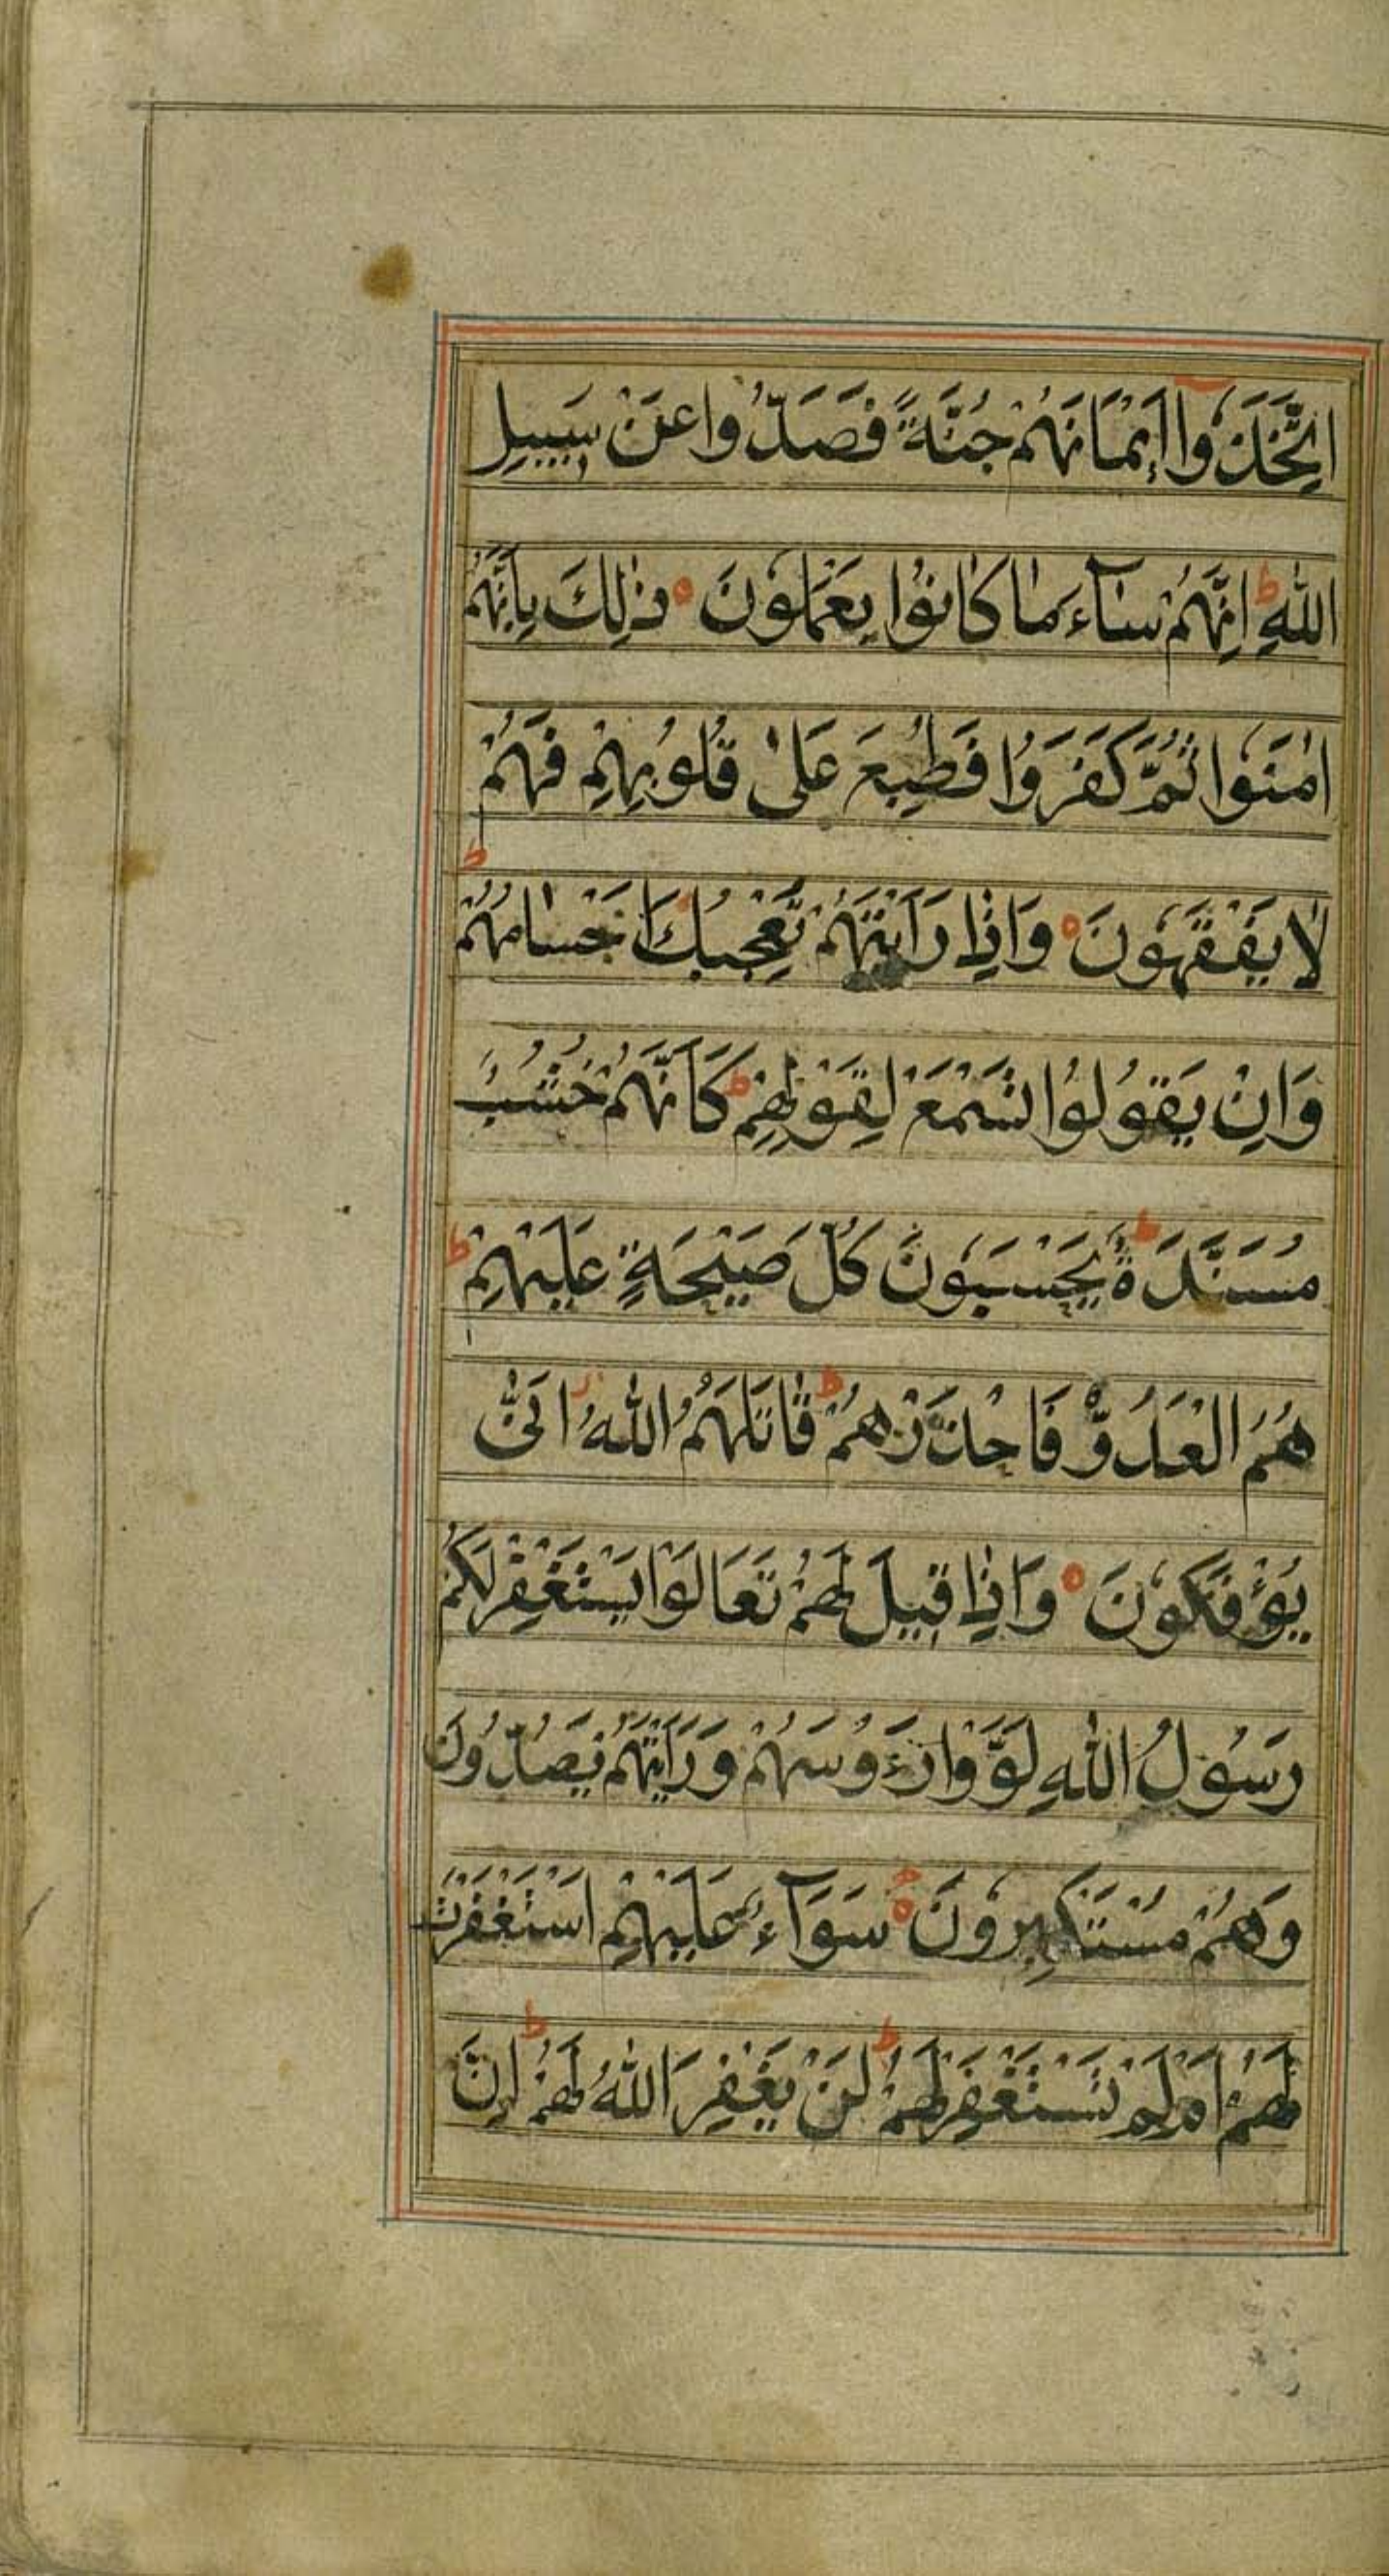 اِتَّخَذُوا اَيْمَانَهُمْ جُنَّةً فَصَدُّوا عَنْ سَبِيلِ
اللّٰهِ ط اِنَّهُمْ سَآءَ مَا كَانُوا يَعْمَلُونَ ه ذٰلِكَ بِاَنَّهُمْ
اٰمَنُوا ثُمَّ كَفَرُوا فَطُبِعَ عَلٰى قُلُوبِهِمْ فَهُمْ
لَا يَفْقَهُونَ ه وَاِذَا رَاَيْتَهُمْ تُعْجِبُكَ اَجْسَامُهُمْ ط
وَاِنْ يَقُولُوا تَسْمَعْ لِقَوْلِهِمْ ط كَاَنَّهُمْ خُشُبٌ
مُسَنَّدَةٌ ط يَحْسَبُونَ كُلَّ صَيْحَةٍ عَلَيْهِمْ ط
هُمُ الْعَدُوُّ فَاحْذَرْهُمْ ط قَاتَلَهُمُ اللّٰهُ ز اَنّٰى
يُؤْفَكُونَ ه وَاِذَا قِيلَ لَهُمْ تَعَالَوْا يَسْتَغْفِرْ لَكُمْ
رَسُولُ اللّٰهِ لَوَّوْا رُءُوسَهُمْ وَرَاَيْتَهُمْ يَصُدُّونَ
وَهُمْ مُسْتَكْبِرُونَ ه سَوَآءٌ عَلَيْهِمْ اَسْتَغْفَرْتَ
لَهُمْ اَمْ لَمْ تَسْتَغْفِرْ لَهُمْ ط لَنْ يَغْفِرَ اللّٰهُ لَهُمْ ط اِنَّ